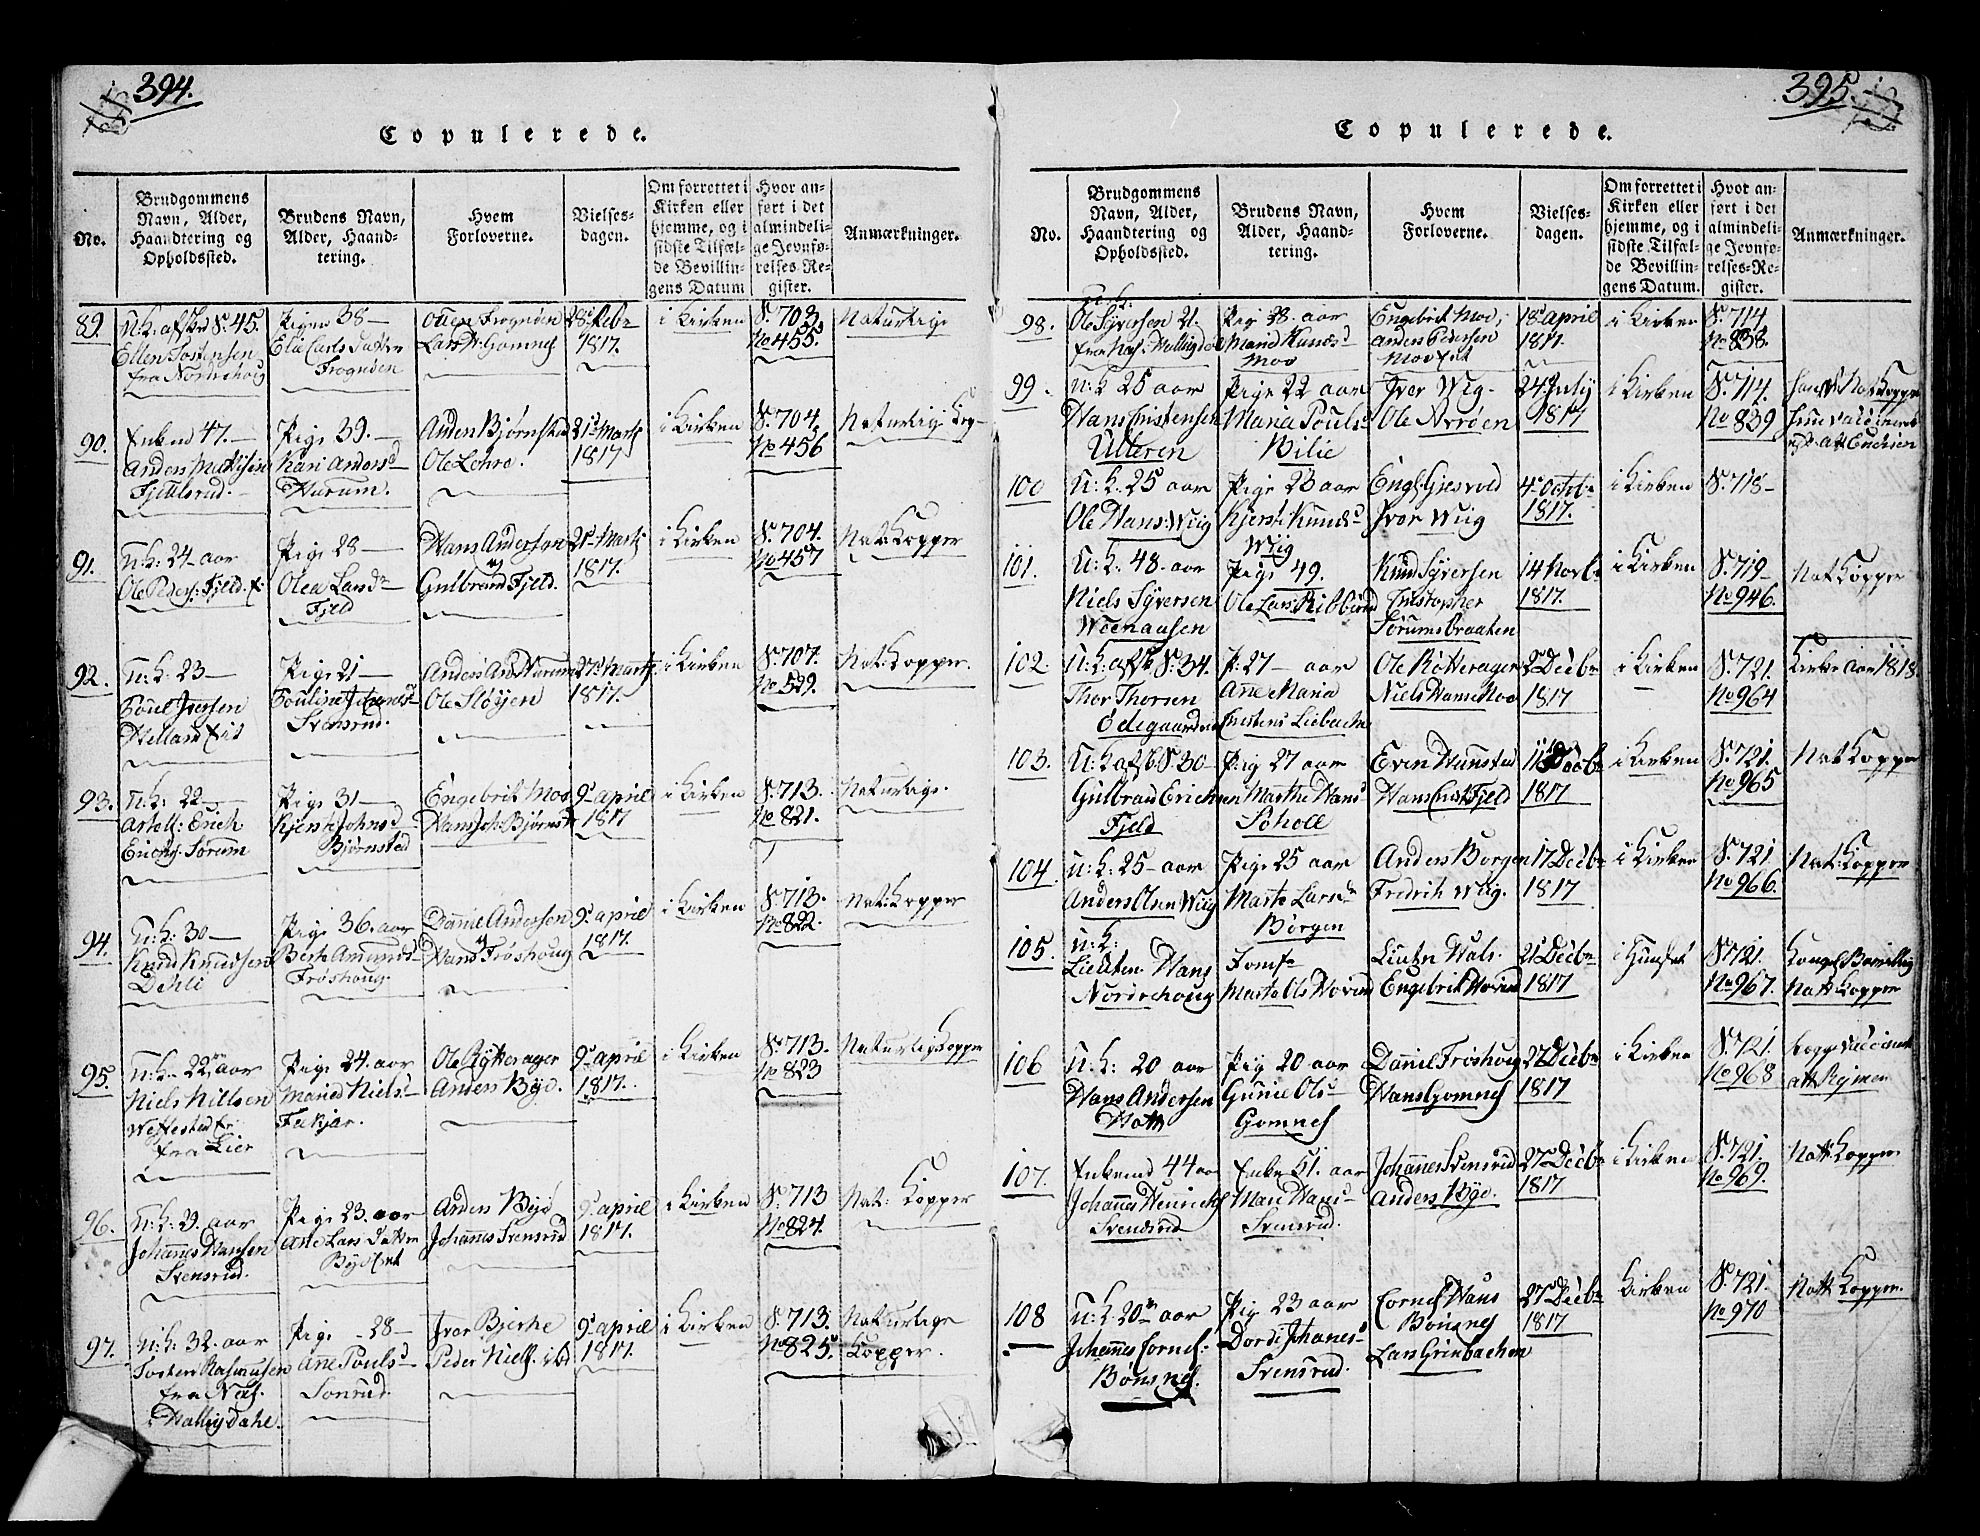 394.
Copulerede.
No.
Brudgommens Navn, Alder, Haandtering og Opholdssted.
Brudens Navn, Alder, Haandtering.
Hvem Forloverne.
Vielses-dagen.
Om forrettet i Kirken eller hjemme, og i sidste Tilfælde Bevillingens Datum
Hvor anført i det almindelige Jevnførelses-Register.
Anmærkninger.
89.
Ellen Tostensen
fra Norderhoug
Pigen 38 —
Elie Carls Datter
Frognøen
Lars Gomnes
1817.
i Kirken
S. 703
No 455.
Naturlige
90.
Enkem 47. —
Anders
Fjeldsrud.
Pige 39. —
Kari Anders
Harum.
Anders Bjørnstad
Ole Lehne.
21 Marts
1817
i Kirken
S. 704.
No 456
Naturlig Kop-
91.
u: k: 24 aar
Ole Peders: Fjeld
Pige 28 —
Olea Lars
Fjeld
Hans Andersen
Gulbrand Fjeld.
21 Marts
1817.
i Kirken
S. 704.
No 457
Nat Kopper
92.
u: k: 23 —
Poul Iversen
Pige 21 —
Svensrud.
Anders And Harum
Ole Sløyen
27 Marts
1817.
i Kirken
S. 707.
No 529.
Nat: Kopper.
93.
u: k: 22 —
Erich
Erichs. Sørum
Pige 31 —
Kjersti Johns
Bjørnstad
Engebrit Moe
Hans Joh: Bjørnst
9 april
1817
i Kirken
S. 713.
No 821.
Naturlige.
94.
u: k: 30 —
Knud Knudsen
Dehli
Pige 36. aar
Berthe Amunds
Frøshoug.
Daniel Andersen
Hans Frøshoug
9 april
1817.
i Kirken
S. 713.
No 822.
Nat: Kopper
95.
u: k. 22 aar
Niels Nilsen
fra Lier
Pige 24. aar
Maria Niels
Fekjær.
Ole Rytterager
Anders Bye.
9 april
1817.
i Kirken
S. 713.
No 823
Naturlig Kopper
96.
u: k: 29. aar
Johannes Hansen
Svensrud.
Pige 23. aar
Ane Lars Datter
Bye
Anders Bye
Johannes Svensrud
9 april
1817.
i Kirken
S. 713
No 824.
Nat: Kopper
97.
u: k. 32. aar
Tosten Rasmusen
fra Næs.
i Hallingdahl.
Pige — 28 —
Ane Pouls
Sonrud.
Iver Bjerke
Peder Niels.
9 april
1817.
i Kirken
S. 713.
No 825.
Naturlige
Kopper.
395.
Copulerede.
No.
Brudgommens Navn, Alder, Haandtering og Opholdssted.
Brudens Navn, Alder, Haandtering.
Hvem Forloverne.
Vielses-dagen.
Om forrettet i Kirken eller hjemme, og i sidste Tilfælde Bevillingens Datum.
Hvor anført i det almindelige Jevnførelses-Register.
Anmærkninger.
98.
u: k:
Ole Syversen 21.
fra Næs.
Pige 28. aar
Knuds
Moe
Engebrit Moe,
Anders Pedersen
Moe
18 april
1817.
i Kirken
S. 714
No 838.
99.
u: k 25 aar
Hans Cristensen
Ulteren
Pige 22 aar
Maria Pouls
Bilie
Iver Wig.
Ole Arrøen
24 July
1817
i Kirken
S. 714.
No 839
Nat Kopper
100
u: k. 25 aar
Ole Hans: Wiig
Pige 23 aar
Kjersti Knuds
Wiig
Eng: Giesvold
Iver Wiig
4 Octobr
1817.
i Kirken
S. 718 —
101.
u: k. 48. aar
Niels Syversen
Pige 49.
Knud Syversen
Cristopher
Sørumsbraaten
14 Novb
1817.
i Kirken
S. 719 —
No 946.
Nat Kopper
102.
S: 34.
Thor Thorsen
Ødegaarden
P: 27 — aar
Ane Maria
Cristens Liebachen
Ole Røtterager
Niels Hanss Moe
2 Decbr
1817
i Kirken
S. 721.
No 964
aar 1818.
103.
S: 30
Gulbran Erichsen
Fjeld
Pig 27 aar
Marthe Hans
Scholl
Even Hanstad
Hans Crist Fjeld
1817
i Kirken
S. 721.
No 965
Nat Kopper
104.
u: k: 25 — aar
Anders Olsen Wiig
Pige 25 aar
Marte Lars
Børgen
Anders Borgen
Fredrik Wiig.
17 Decbr
1817
i Kirken
S. 721.
No 966.
Nat: Kopper
105.
u: k:
Lieuten. Hans
Norderhoug
Jomf
Marte Ols Hovind
Engebrit Hovind
21 Decbr
1817
S. 721.
No 967.
Natt Kopper
106
u: k: 20 aar
Hans Andersen
Pig 20 aar
Gunil Ols
Gomnes
Daniel Frøshoug
Hans Gomnes
27 Decbr
1817
i Kirken
S. 721.
No 968
107.
Enkemd 44 aar
Johannes Henrichs
Svendsrud
Enke 51. aar
Mari Hans
Svensrud.
Johannes Svensrud
Anders Bye.
27 Decbr
1817
i Kirken
S. 721.
No 969.
Natt Kopper.
108
u: k. 20 aar
Johannes Cornel.
Bønsnes.
Pig 23 aar
Dordi Johanes
Svensrud.
Cornel Hans
Bønsnes
Lars Grinbachen
27 Decbr
1817
Kirken
S. 721.
No 970
Natt Kopper.